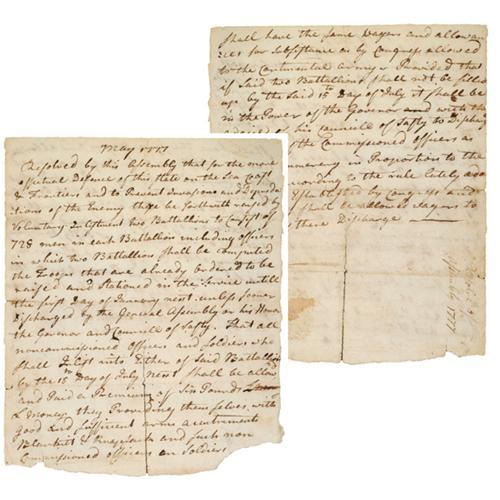 May 1777
Resolved by this Assembly that for the more
effectual Defence of this State on the Sea Coast
& Frontiers and to Prevent Invasions and
of the Enemy there be forthwith raised by
Voluntary Inlistment two Battallions to Consist of
728 men in each Battallion including officers
in which two Battallions shall be computed
the Troops that are already ordered to be
raised and Stationed in the Service untill
the first Day of January next unless sooner
Discharged by the General Assembly or his Honor
the Govenor and Council of Safty. That all
noncommissioned officers and Soldiers who
shall Inlist into Either of Said Battallions
by the 15th Day of July next shall be allowed
and Paid a Premium of Six Pounds
L Money they Providing them selves with
good and sufficient arms
Blankets & Knapsacks and such non
Commissioned officers or Soldiers
shall have the same Wages and allowan
ces for Subsistance as by Congress allowed
to the Continental Army Provided that
if Said two Battallions shall not be filled
up by the Said 15th Day of July it shall be
in the Power of the Govenor and with the
of his Councile of Safty to Discharge
of the Commissioned officers as
in Proportion to the
according to the rule lately
Established by Congress and
shall be allowed Wages to
there Discharge
1777